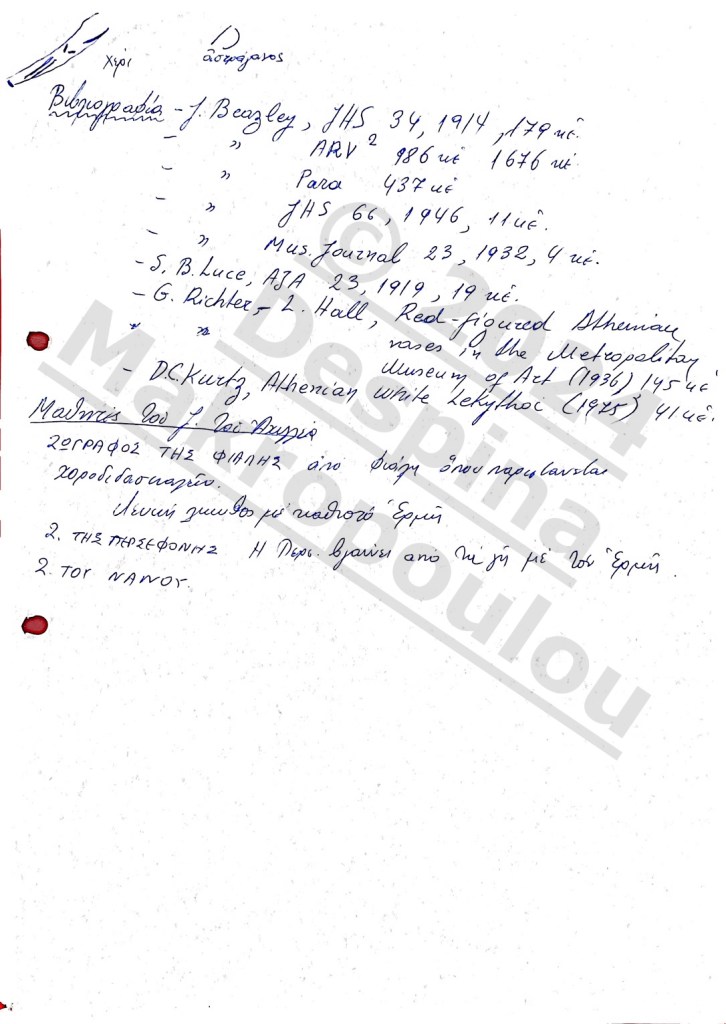 χέρι ἀστράγαλος
Βιβλιογραφία - J. Beazley, JHS 34, 1914, 179 κέ.
- " ARV² 986 κέ 1676 κέ.
- " Para 437 κέ
- " JHS 66, 1946, 11 κέ.
- " Mus. Journal 23, 1932, 4 κέ.
- S. B. Luce, AJA 23, 1919, 19 κέ.
- G. Richter - L. Hall, Red-figured Athenian
" " vases in the Metropolitan
Museum of Art (1936) 145 κέ
- D.C. Kurtz, Athenian White Lekythoi (1975) 41 κέ.
Μαθητές τοῦ Ζ. τοῦ Ἀχιλλέα
ΖΩΓΡΑΦΟΣ ΤΗΣ ΦΙΑΛΗΣ ἀπό φιάλη ὅπου παριστάνεται
χοροδιδασκαλεῖον.
Λευκή λήκυθος μέ καθιστό Ἑρμῆ
Ζ. ΤΗΣ ΠΕΡΣΕΦΟΝΗΣ Η Περσ. βγαίνει από τη γῆ μέ τον Ἑρμῆ.
Ζ. ΤΟΥ ΝΑΝΟΥ.
© 2024
Despina
Makropoulou